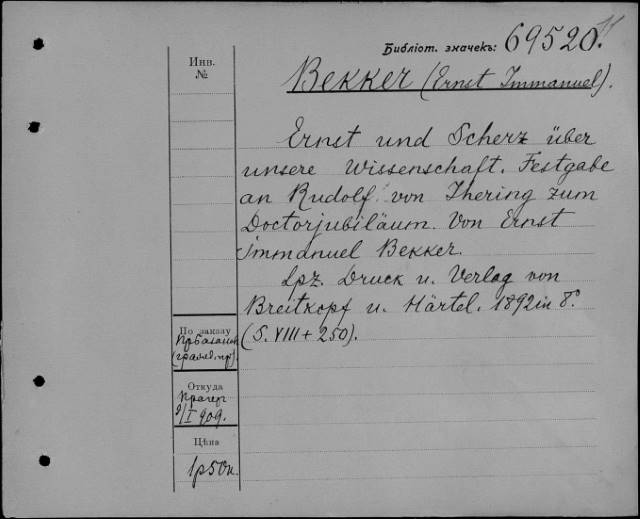 Библіот. значекъ: 69520.
Инв.
№
Bekker (Ernst Immanuel).
Ernst und Scherz über
unsere Wissenschaft. Festgabe
an Rudolf von Ihering zum
Doctorjubiläum. Von Ernst
Immanuel Bekker.
Lpz. Druck u. Verlag von
Breitkopf u. Härtel. 1892 in 8°.
(S. VIII + 250).
По заказу
(гражд. пр.).
Откуда
Прагеръ
9/I 909.
Цѣна
1р50к.